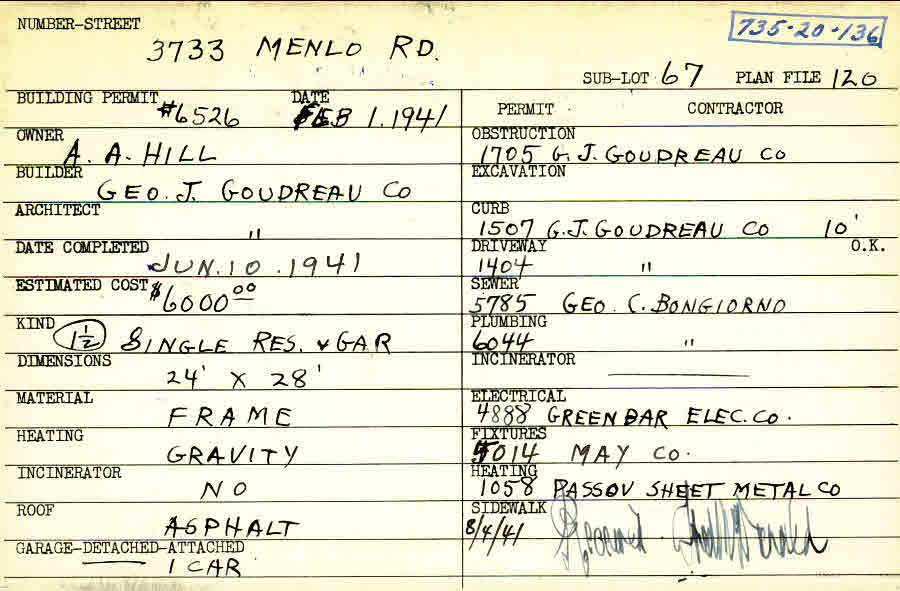 NUMBER-STREET
3733 MENLO RD.
735-20-136
SUB-LOT 67 PLAN FILE 120
BUILDING PERMIT #6526 DATE FEB 1.1941
OWNER
A. A. HILL
BUILDER
GEO. J. GOUDREAU CO
ARCHITECT
"
DATE COMPLETED
JUN. 10. 1941
ESTIMATED COST $6000.00
KIND
1½ SINGLE RES. & GAR
DIMENSIONS
24' X 28'
MATERIAL
FRAME
HEATING
GRAVITY
INCINERATOR
NO
ROOF
ASPHALT
GARAGE-DETACHED-ATTACHED
1 CAR
PERMIT CONTRACTOR
OBSTRUCTION
1705 G. J. GOUDREAU CO
EXCAVATION
CURB
1507 G.J. GOUDREAU CO 10'
DRIVEWAY O.K.
1404 "
SEWER
5785 GEO. C. BONGIORNO
PLUMBING
6044 "
INCINERATOR
ELECTRICAL
4888 GREENBAR ELEC. CO.
FIXTURES
5014 MAY CO.
HEATING
1058 PASSOV SHEET METAL CO
SIDEWALK
8/4/41